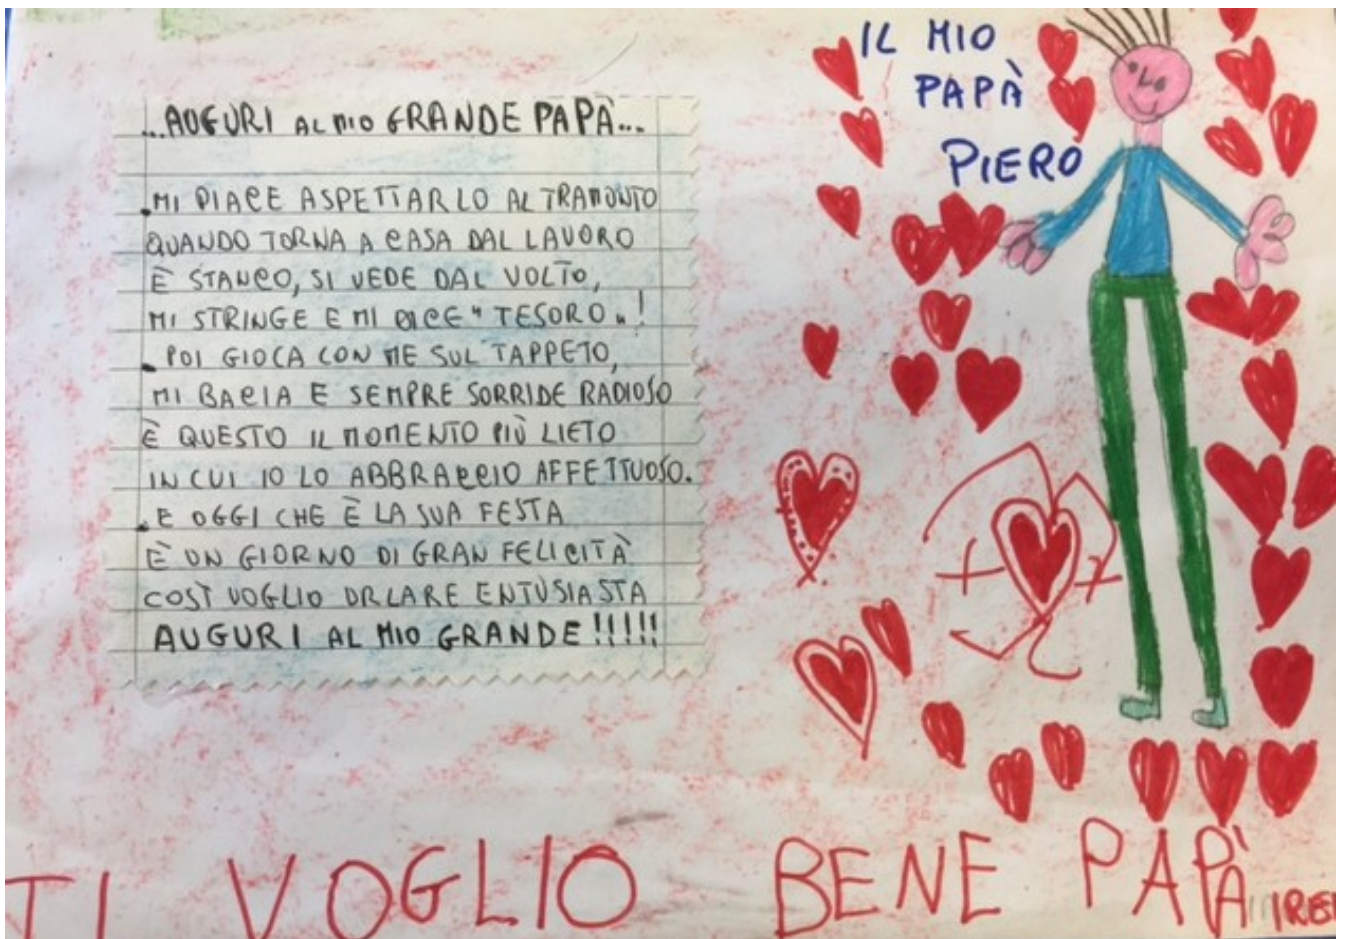 ...AUGURI AL MIO GRANDE PAPÀ...
.MI PIACE ASPETTARLO AL TRAMONTO
QUANDO TORNA A CASA DAL LAVORO
È STANCO, SI VEDE DAL VOLTO,
MI STRINGE E MI DICE "TESORO"!
. POI GIOCA CON ME SUL TAPPETO,
MI BACIA E SEMPRE SORRIDE RADIOSO
È QUESTO IL MOMENTO PIÙ LIETO
IN CUI IO LO ABBRACCIO AFFETTUOSO.
.E OGGI CHE È LA SUA FESTA
È UN GIORNO DI GRAN FELICITÀ
COSÌ VOGLIO URLARE ENTUSIASTA
AUGURI AL MIO GRANDE!!!!!
IL MIO
PAPÀ
PIERO
TI VOGLIO BENE PAPÀ